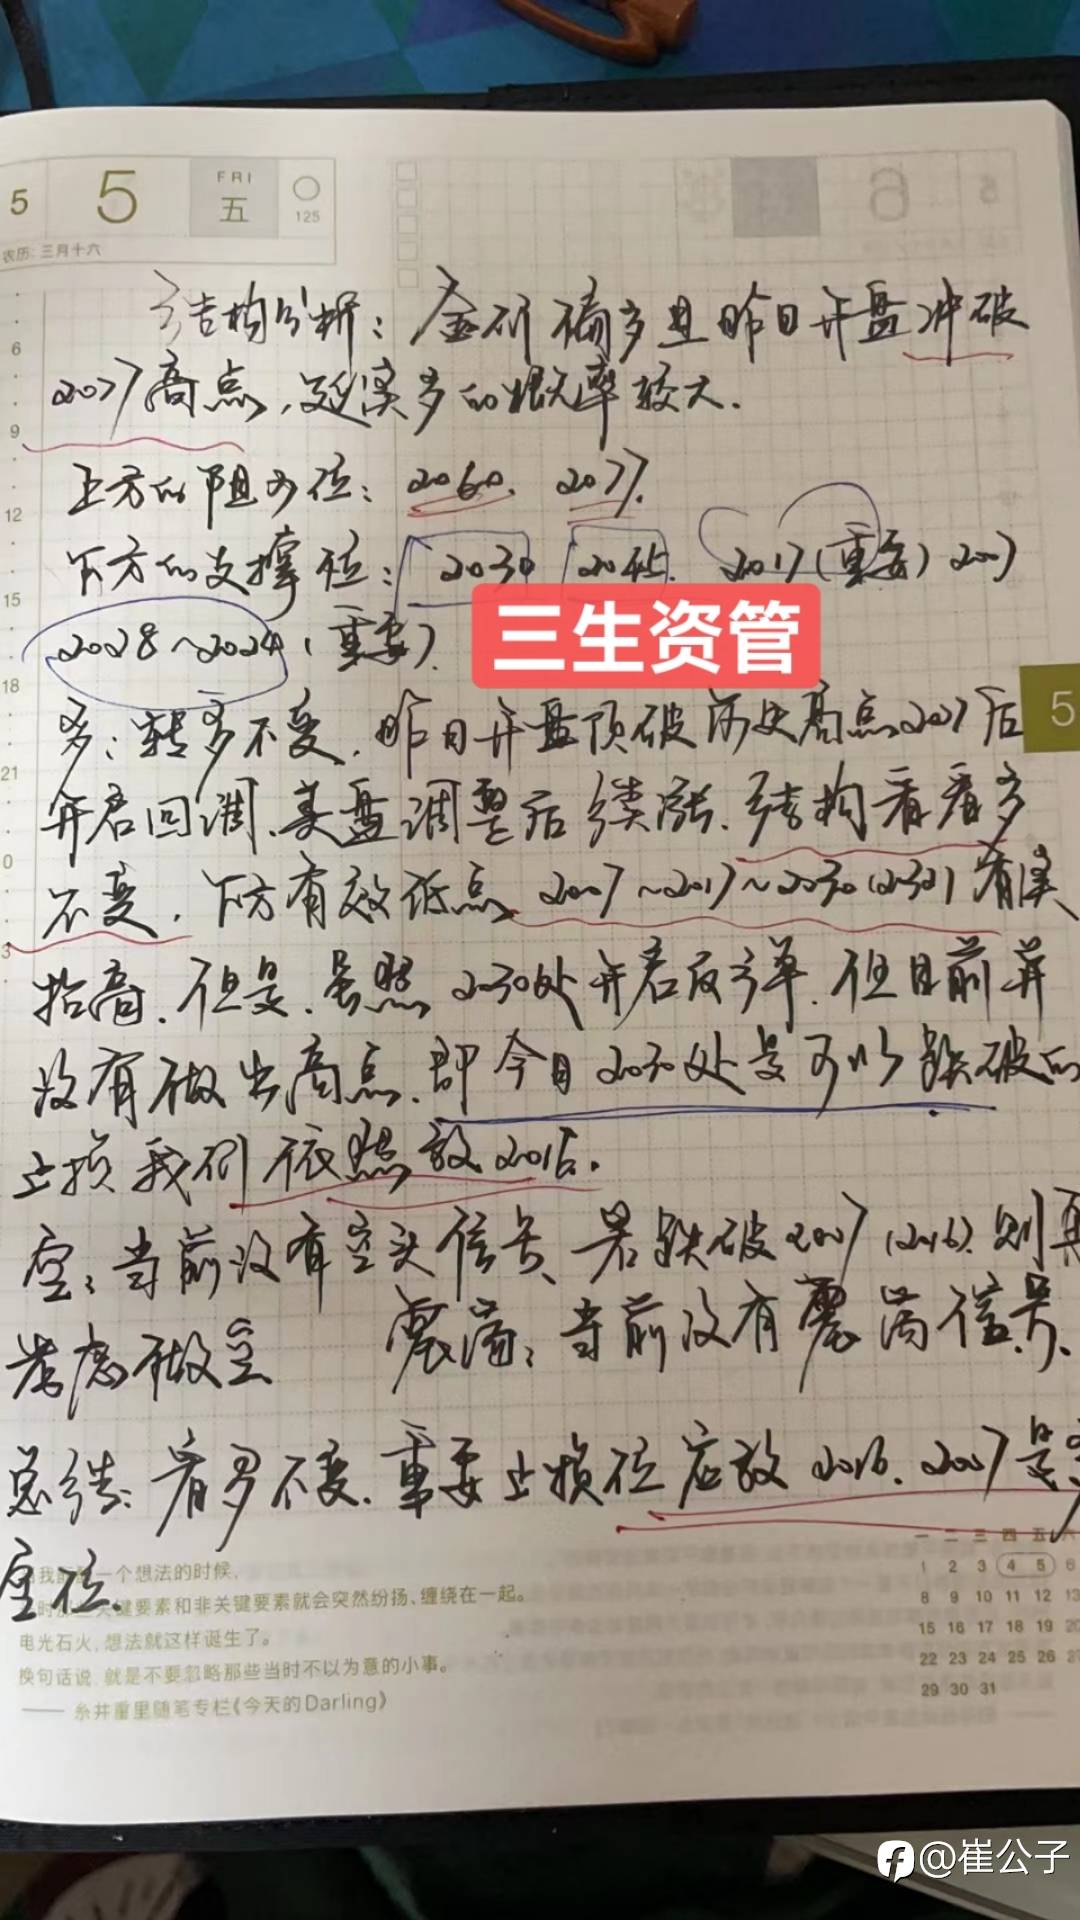 5 5 FRI 五 125
农历:三月十六
结构分析：金价偏多且昨日开盘冲破
2077高点，延续多的概率较大．
上方的阻力位：2060．2077．
下方的支撑位：2030 2045．2017(重要) 2007
2028～2024(重要)．
三生资管
多：转多不变．昨日开盘顶破历史高点2077后
开启回调．美盘调整后续涨．结构看看多
不变．下方有效低点2007～2017～2030(2032)有
抬高．但是．虽然2030处开启反弹．但目前并
没有做出高点．即今日2030处是可以跌破的
止损我们依然放2015．
空：当前没有空头信号．若跌破2007(2016)．则再
考虑做空 震荡：当前没有震荡信号．
总结：看多不变．重要止损位应放2016．2007是多
空位．
一个想法的时候，
键要素和非关键要素就会突然纷扬、缠绕在一起。
电光石火，想法就这样诞生了。
换句话说，就是不要忽略那些当时不以为意的小事。
—— 糸井重里随笔专栏《今天的Darling》
6
9
12
15
18
21
0
3
5
一 二 三 四 五 六
1 2 3 4 5 6
8 9 10 11 12 13
15 16 17 18 19 20
22 23 24 25 26 27
29 30 31
@崔公子